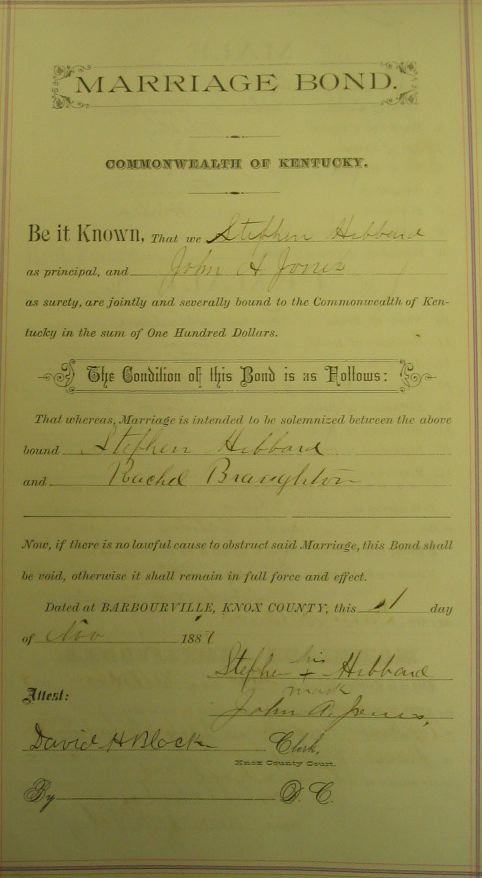 MARRIAGE BOND.
COMMONWEALTH OF KENTUCKY.
Be it Known, That we Stephen Hibbard
as principal, and John H Jones
as surety, are jointly and severally bound to the Commonwealth of Ken-
tucky in the sum of One Hundred Dollars.
The Condition of this Bond is as Follows:
That whereas, Marriage is intended to be solemnized between the above
bound Stephen Hibbard
and Rachel Braughton
Now, if there is no lawful cause to obstruct said Marriage, this Bond shall
be void, otherwise it shall remain in full force and effect.
Dated at BARBOURVILLE, KNOX COUNTY, this day
of Nov 188
his
Stephen + Hibbard
mark
Attest:
John Jones,
David H Black Clerk,
Knox County Court.
By D. C.